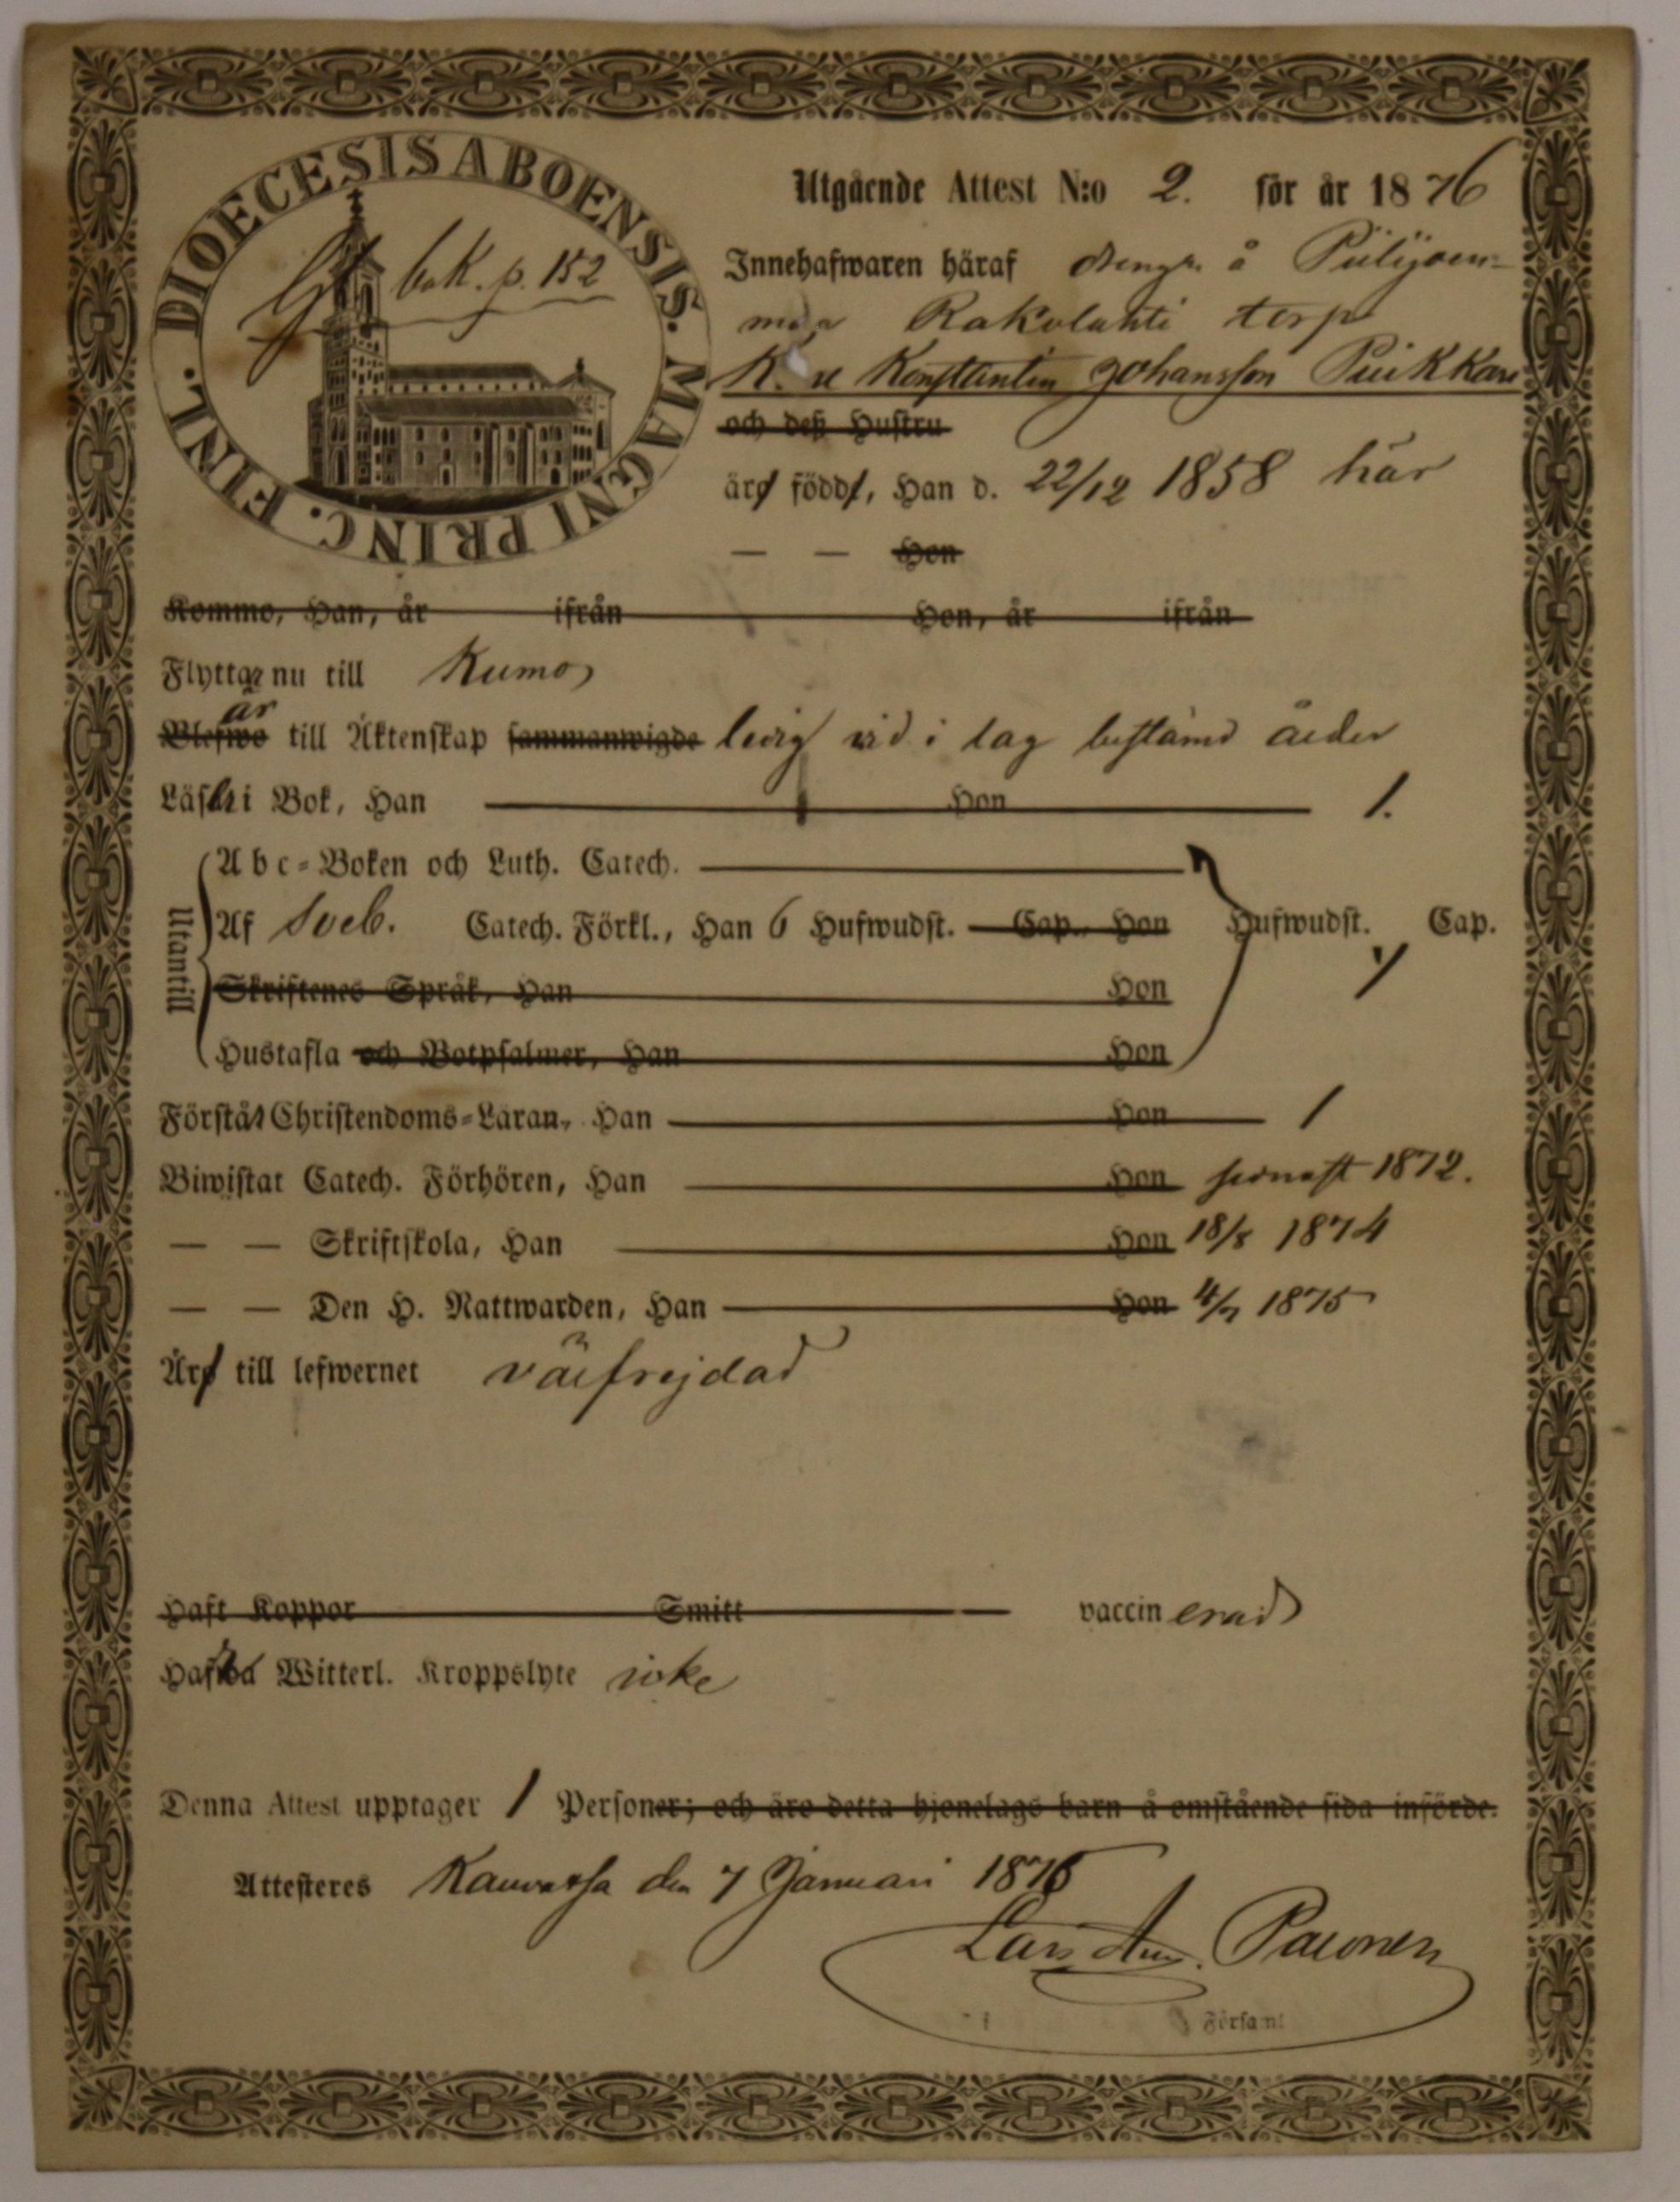 DIOECESIS ABOENSIS. MAGNI PRINC. FINL.
bok. p. 152
Utgående Attest N:o 2. för år 1876
Innehafwaren häraf drengen å Pülijoen-
maa Rakolahti torp
Konstantin Johansson Puikkari
och deß Hustru
äro född, Han d. 22/12 1858 här
— — Hon
Kommo, Han, år ifrån Hon, år ifrån
Flyttar nu till Kumo
är
Blefwo till Äktenskap sammanwigde ledig vid i lag bestämd ålder
Läser i Bok, Han Hon 1.
Utantill
Abc-Boken och Luth. Catech.
Af Sveb. Catech. Förkl., Han 6 Hufwudst. Cap., Hon Hufwudst. Cap.
Skriftenes Språk, Han Hon
Hustafla och Botpsalmer, Han Hon
Förstår Christendoms-Läran, Han Hon 1
Biwistat Catech. Förhören, Han Hon senast 1872.
— — Skriftskola, Han Hon 18/8 1874
— — Den H. Nattwarden, Han Hon 4/7 1875
Äro till lefwernet välfrejdad
Haft Koppor Smitt vaccinerad
Hafwa Witterl. Kroppslyte icke
Denna Attest upptager 1 Personer; och äro detta hjonelags barn å omstående sida införde.
Attesteres Kauvatsa den 7 Januari 1876
Lars Aug. Paunen
Församl